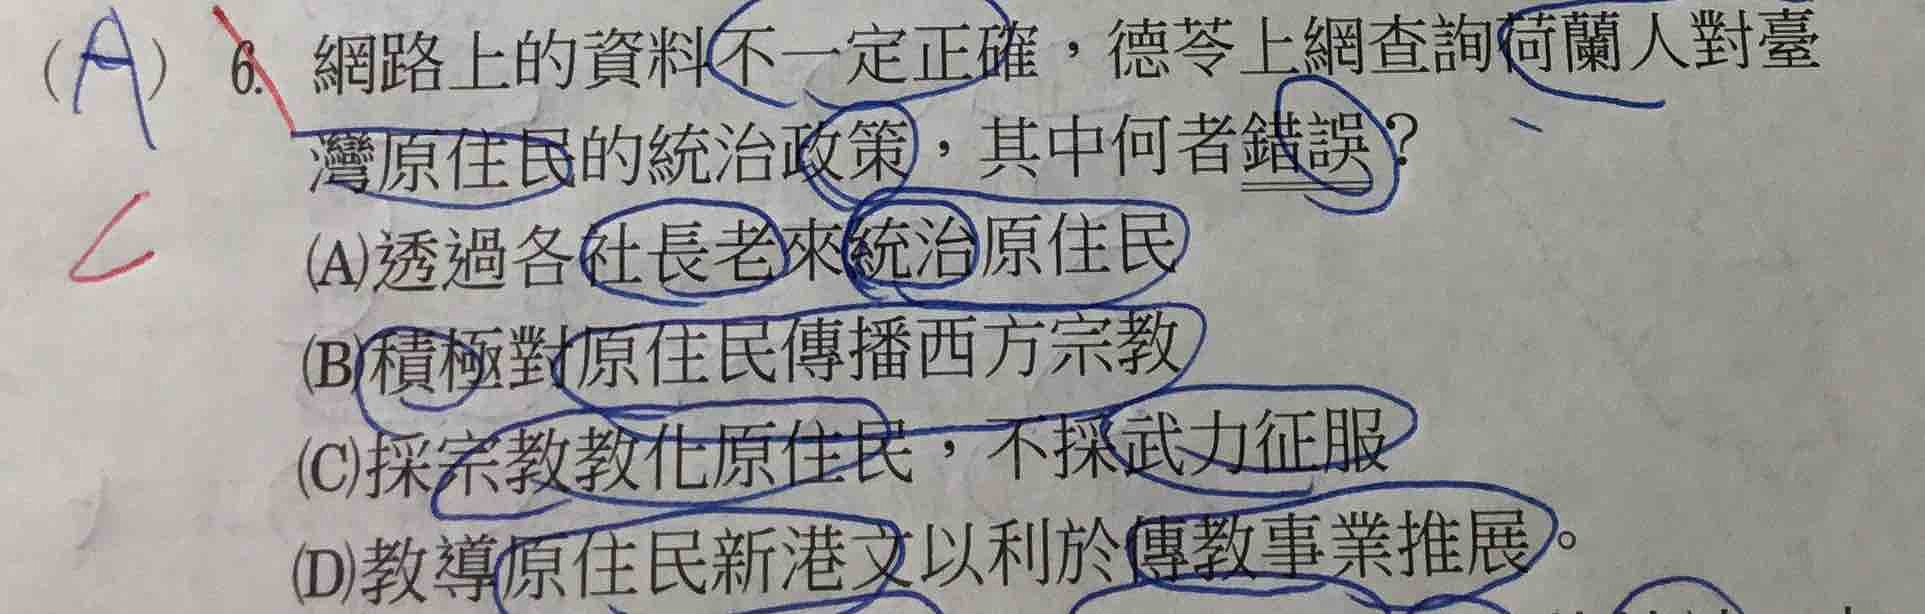 (A) 6. 網路上的資料不一定正確，德苓上網查詢荷蘭人對臺
灣原住民的統治政策，其中何者錯誤？
C
(A)透過各社長老來統治原住民
(B)積極對原住民傳播西方宗教
(C)採宗教教化原住民，不採武力征服
(D)教導原住民新港文以利於傳教事業推展。